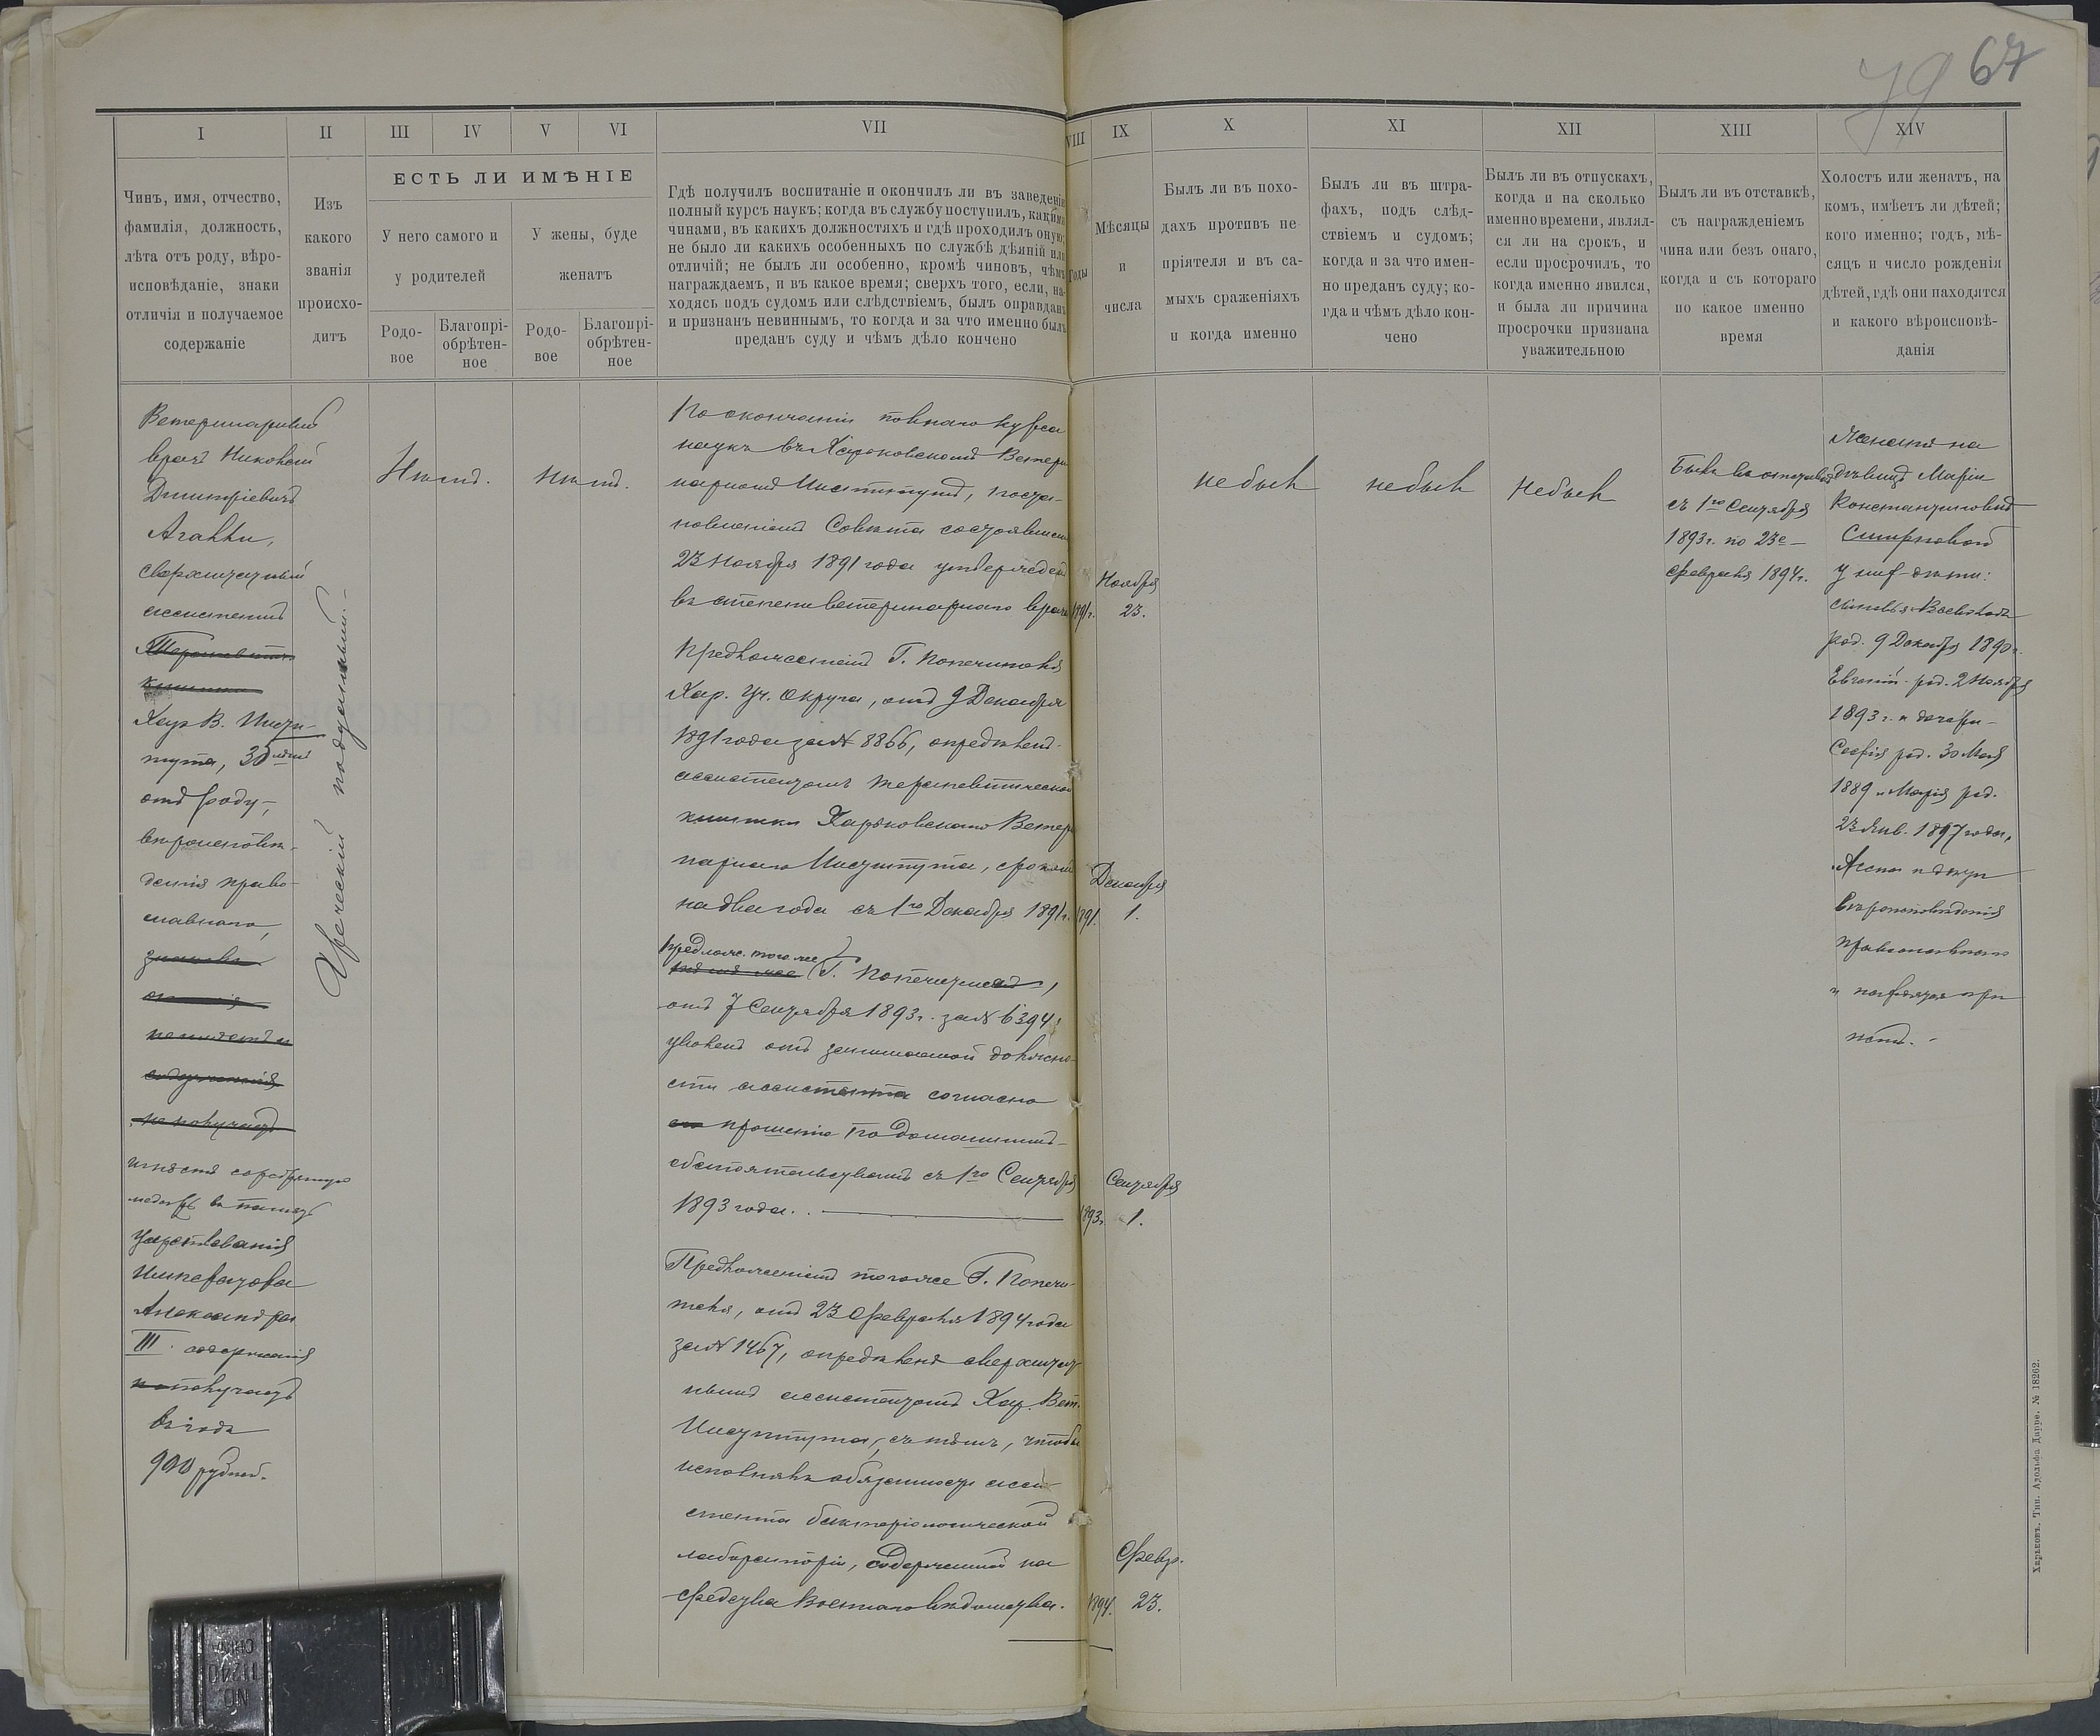 79 67
I II III IV V VI VII VIII IX X XI XII XIII XIV
Чинъ, имя, отчество,
фамилія, должность,
лѣта отъ роду, вѣро-
исповѣданіе, знаки
отличія и получаемое
содержаніе
Изъ
какого
званія
происхо-
дитъ
ЕСТЬ ЛИ ИМѢНІЕ
У него самого и
у родителей
У жены, буде
женатъ
Родо-
вое
Благопрі-
обрѣтен-
ное
Родо-
вое
Благопрі-
обрѣтен-
ное
Гдѣ получилъ воспитаніе и окончилъ ли въ заведеніи
полный курсъ наукъ; когда въ службу поступилъ, какими
чинами, въ какихъ должностяхъ и гдѣ проходилъ оную;
не было ли какихъ особенныхъ по службѣ дѣяній или
отличій; не былъ ли особенно, кромѣ чиновъ, чѣмъ
награждаемъ, и въ какое время; сверхъ того, если, на-
ходясь подъ судомъ или слѣдствіемъ, былъ оправданъ
и признанъ невиннымъ, то когда и за что именно былъ
преданъ суду и чѣмъ дѣло кончено
Годы
Мѣсяцы
и
числа
Былъ ли въ похо-
дахъ противъ не-
пріятеля и въ са-
мыхъ сраженіяхъ
и когда именно
Былъ ли въ штра-
фахъ, подъ слѣд-
ствіемъ и судомъ;
когда и за что имен-
но преданъ суду; ко-
гда и чѣмъ дѣло кон-
чено
Былъ ли въ отпускахъ,
когда и на сколько
именно времени, являл-
ся ли на срокъ, и
если просрочилъ, то
когда именно явился,
и была ли причина
просрочки признана
уважительною
Былъ ли въ отставкѣ,
съ награжденіемъ
чина или безъ онаго,
когда и съ котораго
по какое именно
время
Холостъ или женатъ, на
комъ, имѣетъ ли дѣтей;
кого именно; годъ, мѣ-
сяцъ и число рожденія
дѣтей, гдѣ они находятся
и какого вѣроисповѣ-
данія
Ветеринарный
врачъ Николай
Дмитріевичъ
Агалли,
сверхштатный
ассистентъ
Терапевтич.
клиники
Хар. В. Инсти-
тута, 35 лѣтъ
отъ роду,
вѣроисповѣ-
данія право-
славнаго,
знаковъ
отличія
не имѣетъ и
содержанія
не получаетъ
имѣетъ серебряную
медаль въ память
царствованія
Императора
Александра
III. содержанія
не получаетъ
въ годъ
900 рублей.
Греческій подданный.
Нѣтъ.
Нѣтъ.
По окончаніи полнаго курса
наукъ въ Харьковскомъ Ветери
нарномъ Институтѣ, поста-
новленіемъ Совѣта состоявшимся
23 Ноября 1891 года утвержденъ
въ степени ветеринарнаго врача
1891 г.
Ноября
23.
Предложеніемъ Г. Попечителя
Хар. Уч. Округа, отъ 9 Декабря
1891 года за № 8866, опредѣленъ
ассистентомъ терапевтической
клиники Харьковскаго Ветери
нарнаго Института, срокомъ
на два года съ 1го Декабря 1891 г.
1891.
Декабря
1.
предлож. того же
Г. Попечителя,
отъ 7 Сентября 1893 г. за № 6394,
уволенъ отъ занимаемой должно-
сти ассистента согласно
его прошенію по домашнимъ
обстоятельствамъ съ 1го Сентября
1893 года.
1893.
Сентября
1.
Предложеніемъ того же Г. Попечи-
теля, отъ 23 Февраля 1894 года
за № 1467, опредѣленъ сверхштат
нымъ ассистентомъ Хар. Вет.
Института, съ тѣмъ, чтобы
исполнялъ обязанности асси-
стента бактеріологической
лабораторіи, содержимой на
средства Военнаго вѣдомства.
1894.
Февр.
23.
не былъ
не былъ
Не былъ
Былъ въ отставкѣ
съ 1го Сентября
1893 г. по 23е
Февраля 1894 г.
Женатъ на
дѣвицѣ Маріи
Константиновнѣ
Смирновой
у них дѣти:
сыновья Всеволодъ
род. 9 Декабря 1890 г.
Евгеній род. 2 Ноября
1893 г. и дочери
Софія род. 30 Мая
1889 и Марія род.
23 Янв. 1897 года.
Жена и дѣти
вѣроисповѣданія
православнаго
и находятся при
немъ.
Харьковъ. Тип. Адольфа Дарре. № 18262.